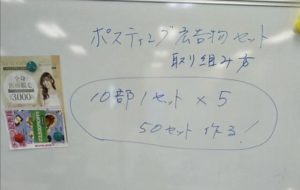 ポスティング広告物セット
取り組み方
10部1セット × 5
50セット 作る!
全身
医療脱毛
¥3000